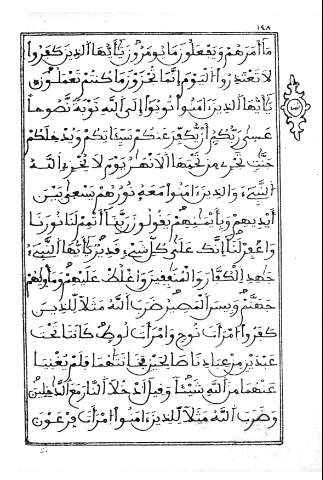 ١٤٨
مَا أَمَرَهُمْ وَيَفْعَلُونَ مَا يُومَرُونَ يَٰأَيُّهَا الذِينَ كَفَرُوا
لَا تَعْتَذِرُوا الْيَوْمَ إِنَّمَا تُجْزَوْنَ مَا كُنتُمْ تَعْمَلُونَ
يَٰأَيُّهَا الذِينَ ءَامَنُوا تُوبُوا إِلَى اللَّهِ تَوْبَةً نَّصُوحًا
عَسَىٰ رَبُّكُمْ أَنْ يُّكَفِّرَ عَنكُمْ سَيِّئَاتِكُمْ وَيُدْخِلَكُمْ
جَنَّٰتٍ تَجْرِي مِن تَحْتِهَا الْأَنْهَٰرُ يَوْمَ لَا يُخْزِي اللَّهُ
النَّبِيءَ وَالذِينَ ءَامَنُوا مَعَهُ نُورُهُمْ يَسْعَىٰ بَيْنَ
أَيْدِيهِمْ وَبِأَيْمَٰنِهِمْ يَقُولُونَ رَبَّنَا أَتْمِمْ لَنَا نُورَنَا
وَاغْفِرْ لَنَا إِنَّكَ عَلَىٰ كُلِّ شَيْءٍ قَدِيرٌ يَٰأَيُّهَا النَّبِيءُ
جَٰهِدِ الْكُفَّارَ وَالْمُنَٰفِقِينَ وَاغْلُظْ عَلَيْهِمْ وَمَأْوَىٰهُمْ
جَهَنَّمُ وَبِيسَ الْمَصِيرُ ضَرَبَ اللَّهُ مَثَلًا لِّلذِينَ
كَفَرُوا امْرَأَتَ نُوحٍ وَامْرَأَتَ لُوطٍ كَانَتَا تَحْتَ
عَبْدَيْنِ مِنْ عِبَادِنَا صَٰلِحَيْنِ فَخَانَتَٰهُمَا فَلَمْ يُغْنِيَا
عَنْهُمَا مِنَ اللَّهِ شَيْئًا وَقِيلَ ادْخُلَا النَّارَ مَعَ الدَّٰخِلِينَ
وَضَرَبَ اللَّهُ مَثَلًا لِّلذِينَ ءَامَنُوا امْرَأَتَ فِرْعَوْنَ